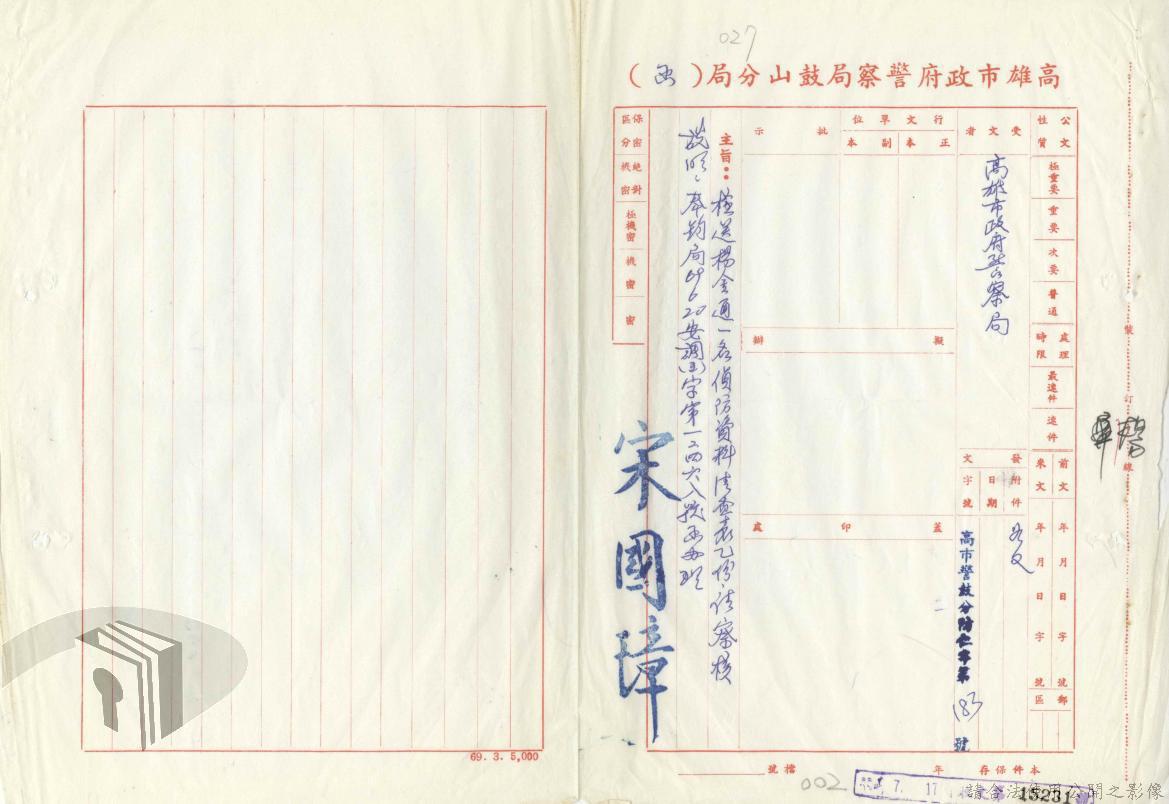 027
高雄市政府警察局鼓山分局(函)
公文性質
極重要
重要
次要
普通
處理時限
最速件
速件
前文
年月日字號
來文
年月日字號
郵區
受文者
高雄市政府警察局
發文
附件
如文
日期
字號
高市警鼓分防仁字第183號
行文單位
正本
副本
批示
擬辦
蓋印處
主旨:檢送楊金通一名偵防資料清查表乙份,請察核
說明、奉鈞局69 6 20安調(四)字第一二四六八號函辦理
宋國璋
保密區分
絕對機密
極機密
機密
密
裝訂線
本件保存 年 檔號
002
7. 17
15231
69. 3. 5,000
請合法使用公開之影像